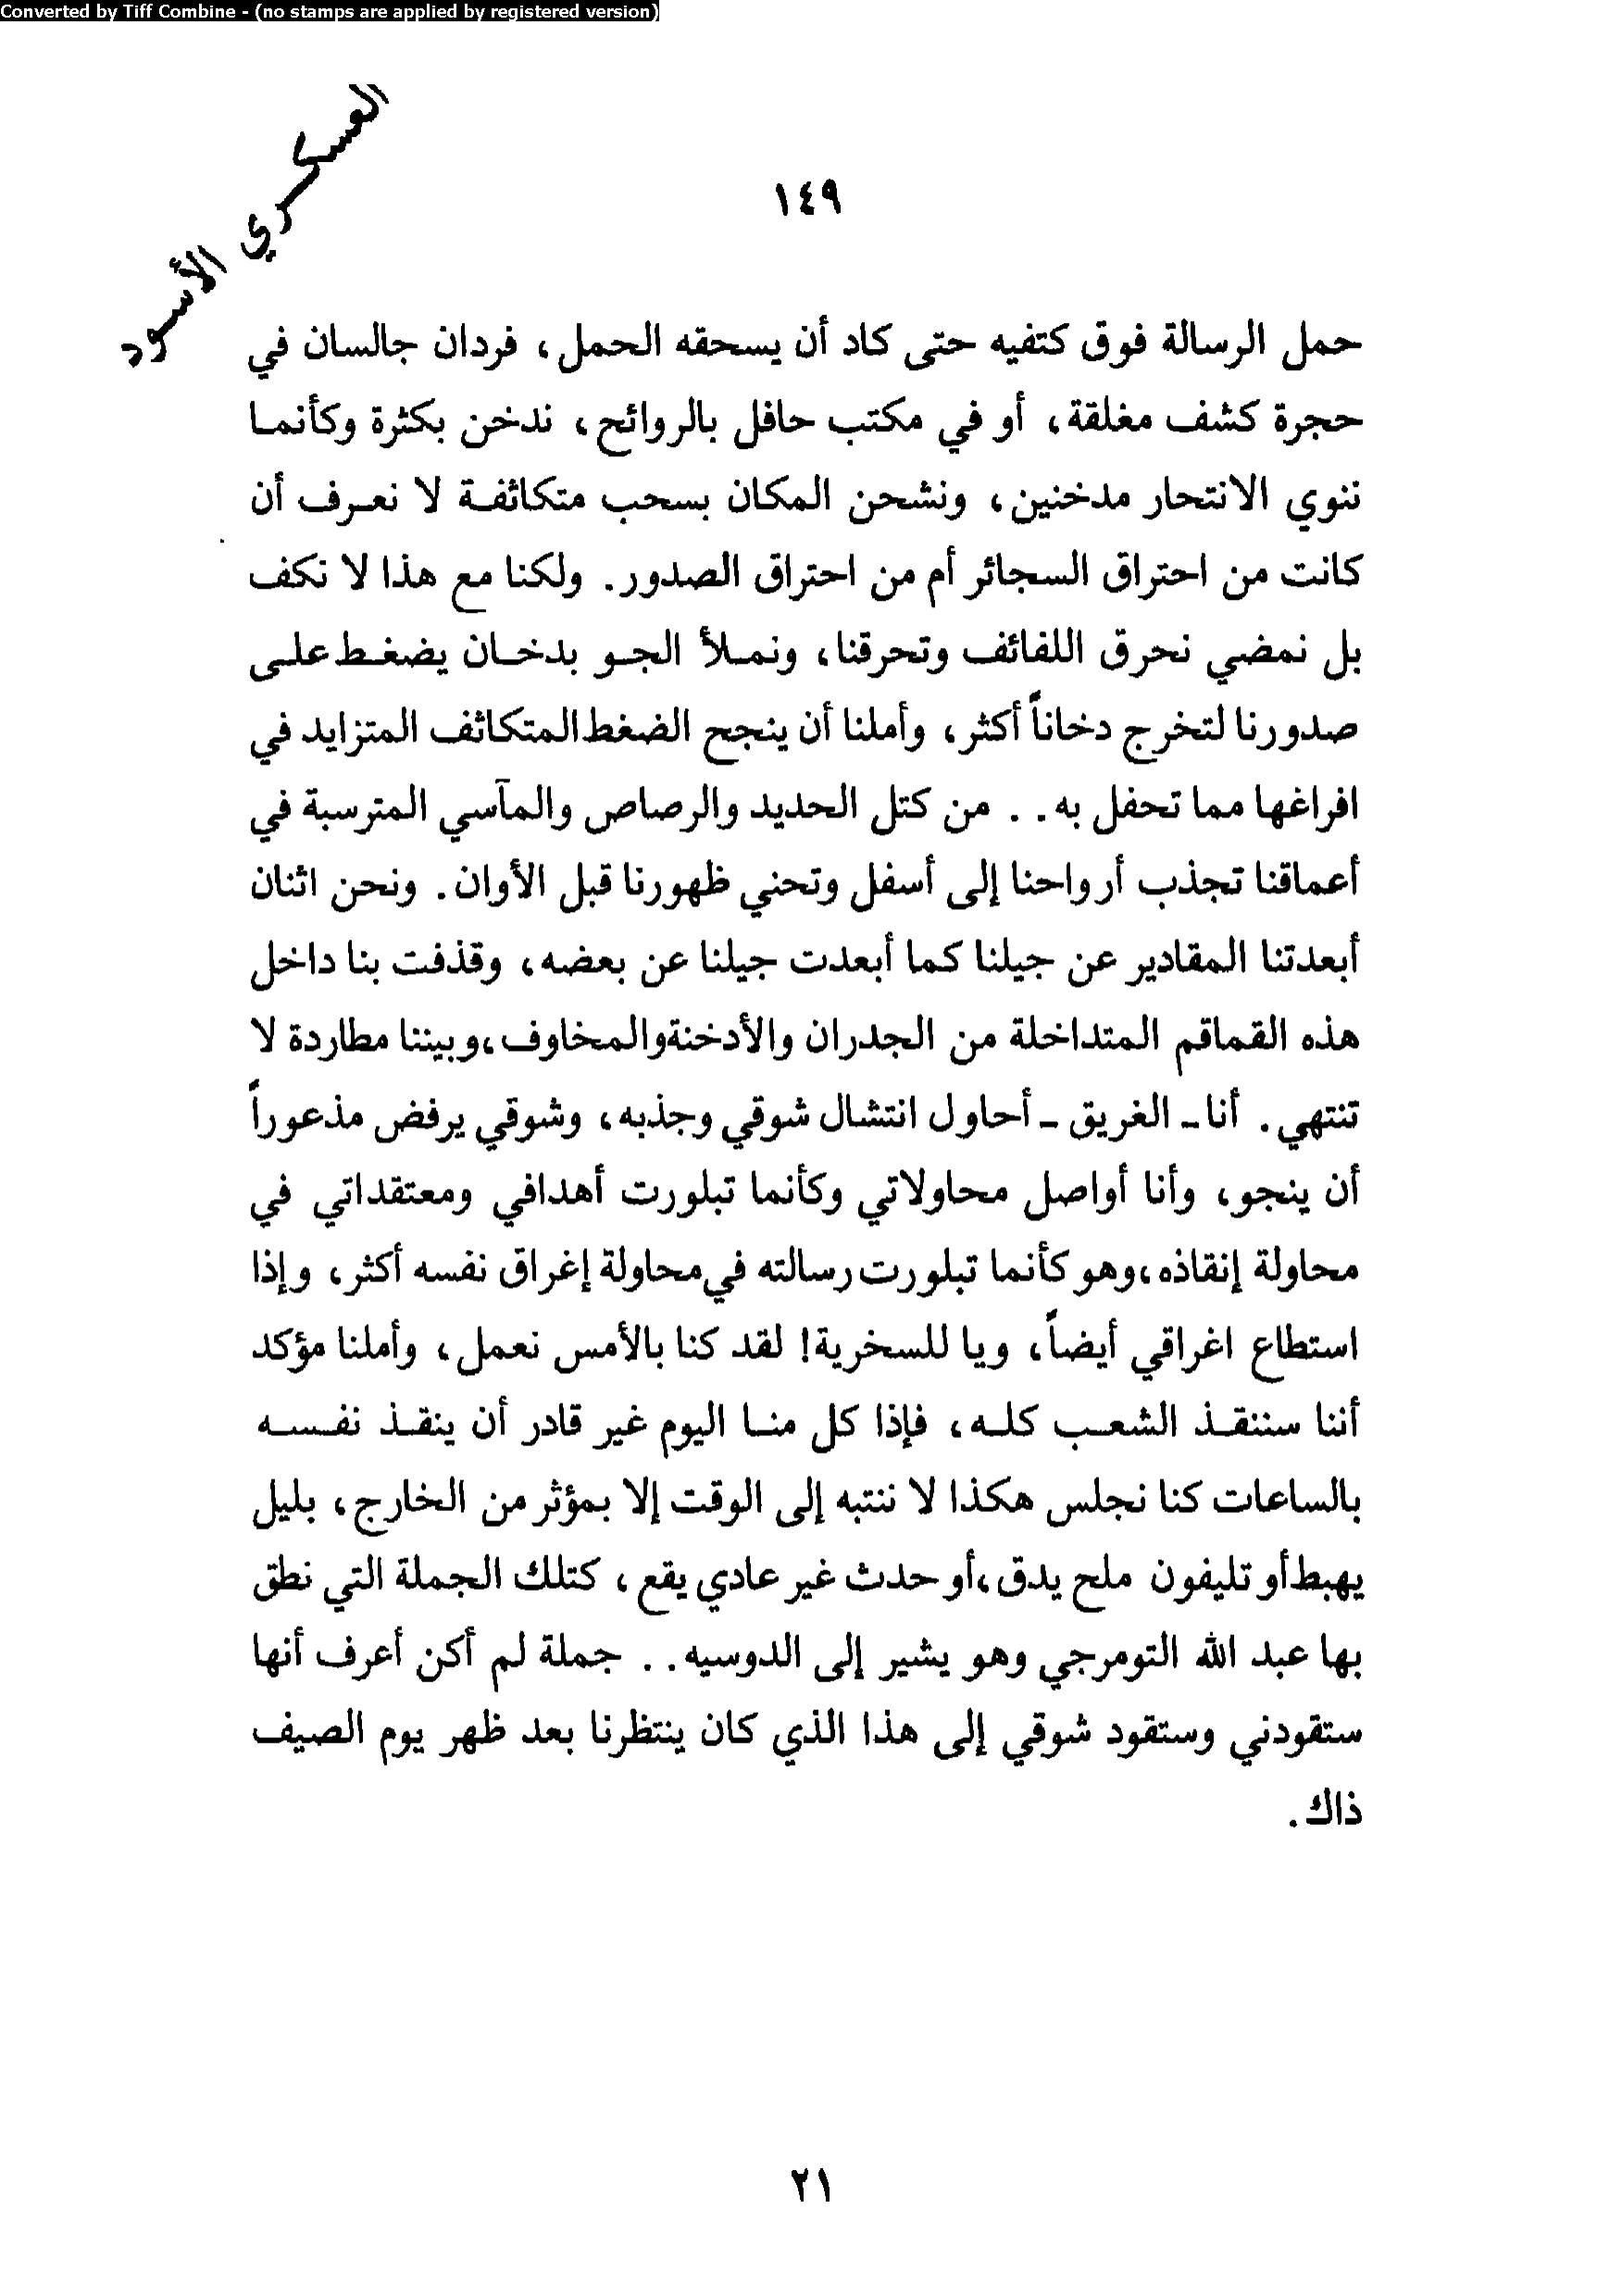 Converted by Tiff Combine - (no stamps are applied by registered version)
العسكري الأسود
١٤٩
حمل الرسالة فوق كتفيه حتى كاد أن يسحقه الحمل، فردان جالسان في
حجرة كشف مغلقة، أو في مكتب حافل بالروائح، ندخن بكثرة وكأنما
ننوي الانتحار مدخنين، ونشحن المكان بسحب متكاثفة لا نعرف أن
كانت من احتراق السجائر أم من احتراق الصدور. ولكنا مع هذا لا نكف
بل نمضي نحرق اللفائف وتحرقنا، ونملأ الجو بدخان يضغط على
صدورنا لتخرج دخاناً أكثر، وأملنا أن ينجح الضغط المتكاثف المتزايد في
افراغها مما تحفل به.. من كتل الحديد والرصاص والمآسي المترسبة في
أعماقنا تجذب أرواحنا إلى أسفل وتحني ظهورنا قبل الأوان. ونحن اثنان
أبعدتنا المقادير عن جيلنا كما أبعدت جيلنا عن بعضه، وقذفت بنا داخل
هذه القماقم المتداخلة من الجدران والأدخنة والمخاوف، وبيننا مطاردة لا
تنتهي. أنا - الغريق - أحاول انتشال شوقي وجذبه، وشوقي يرفض مذعوراً
أن ينجو، وأنا أواصل محاولاتي وكأنما تبلورت أهدافي ومعتقداتي في
محاولة إنقاذه، وهو كأنما تبلورت رسالته في محاولة إغراق نفسه أكثر، وإذا
استطاع اغراقي أيضاً، ويا للسخرية! لقد كنا بالأمس نعمل، وأملنا مؤكد
أننا سننقذ الشعب كله، فإذا كل منا اليوم غير قادر أن ينقذ نفسه
بالساعات كنا نجلس هكذا لا ننتبه إلى الوقت إلا بمؤثر من الخارج، بليل
يهبط أو تليفون ملح يدق، أو حدث غير عادي يقع، كتلك الجملة التي نطق
بها عبد الله التومرجي وهو يشير إلى الدوسيه.. جملة لم أكن أعرف أنها
ستقودني وستقود شوقي إلى هذا الذي كان ينتظرنا بعد ظهر يوم الصيف
ذاك.
٢١